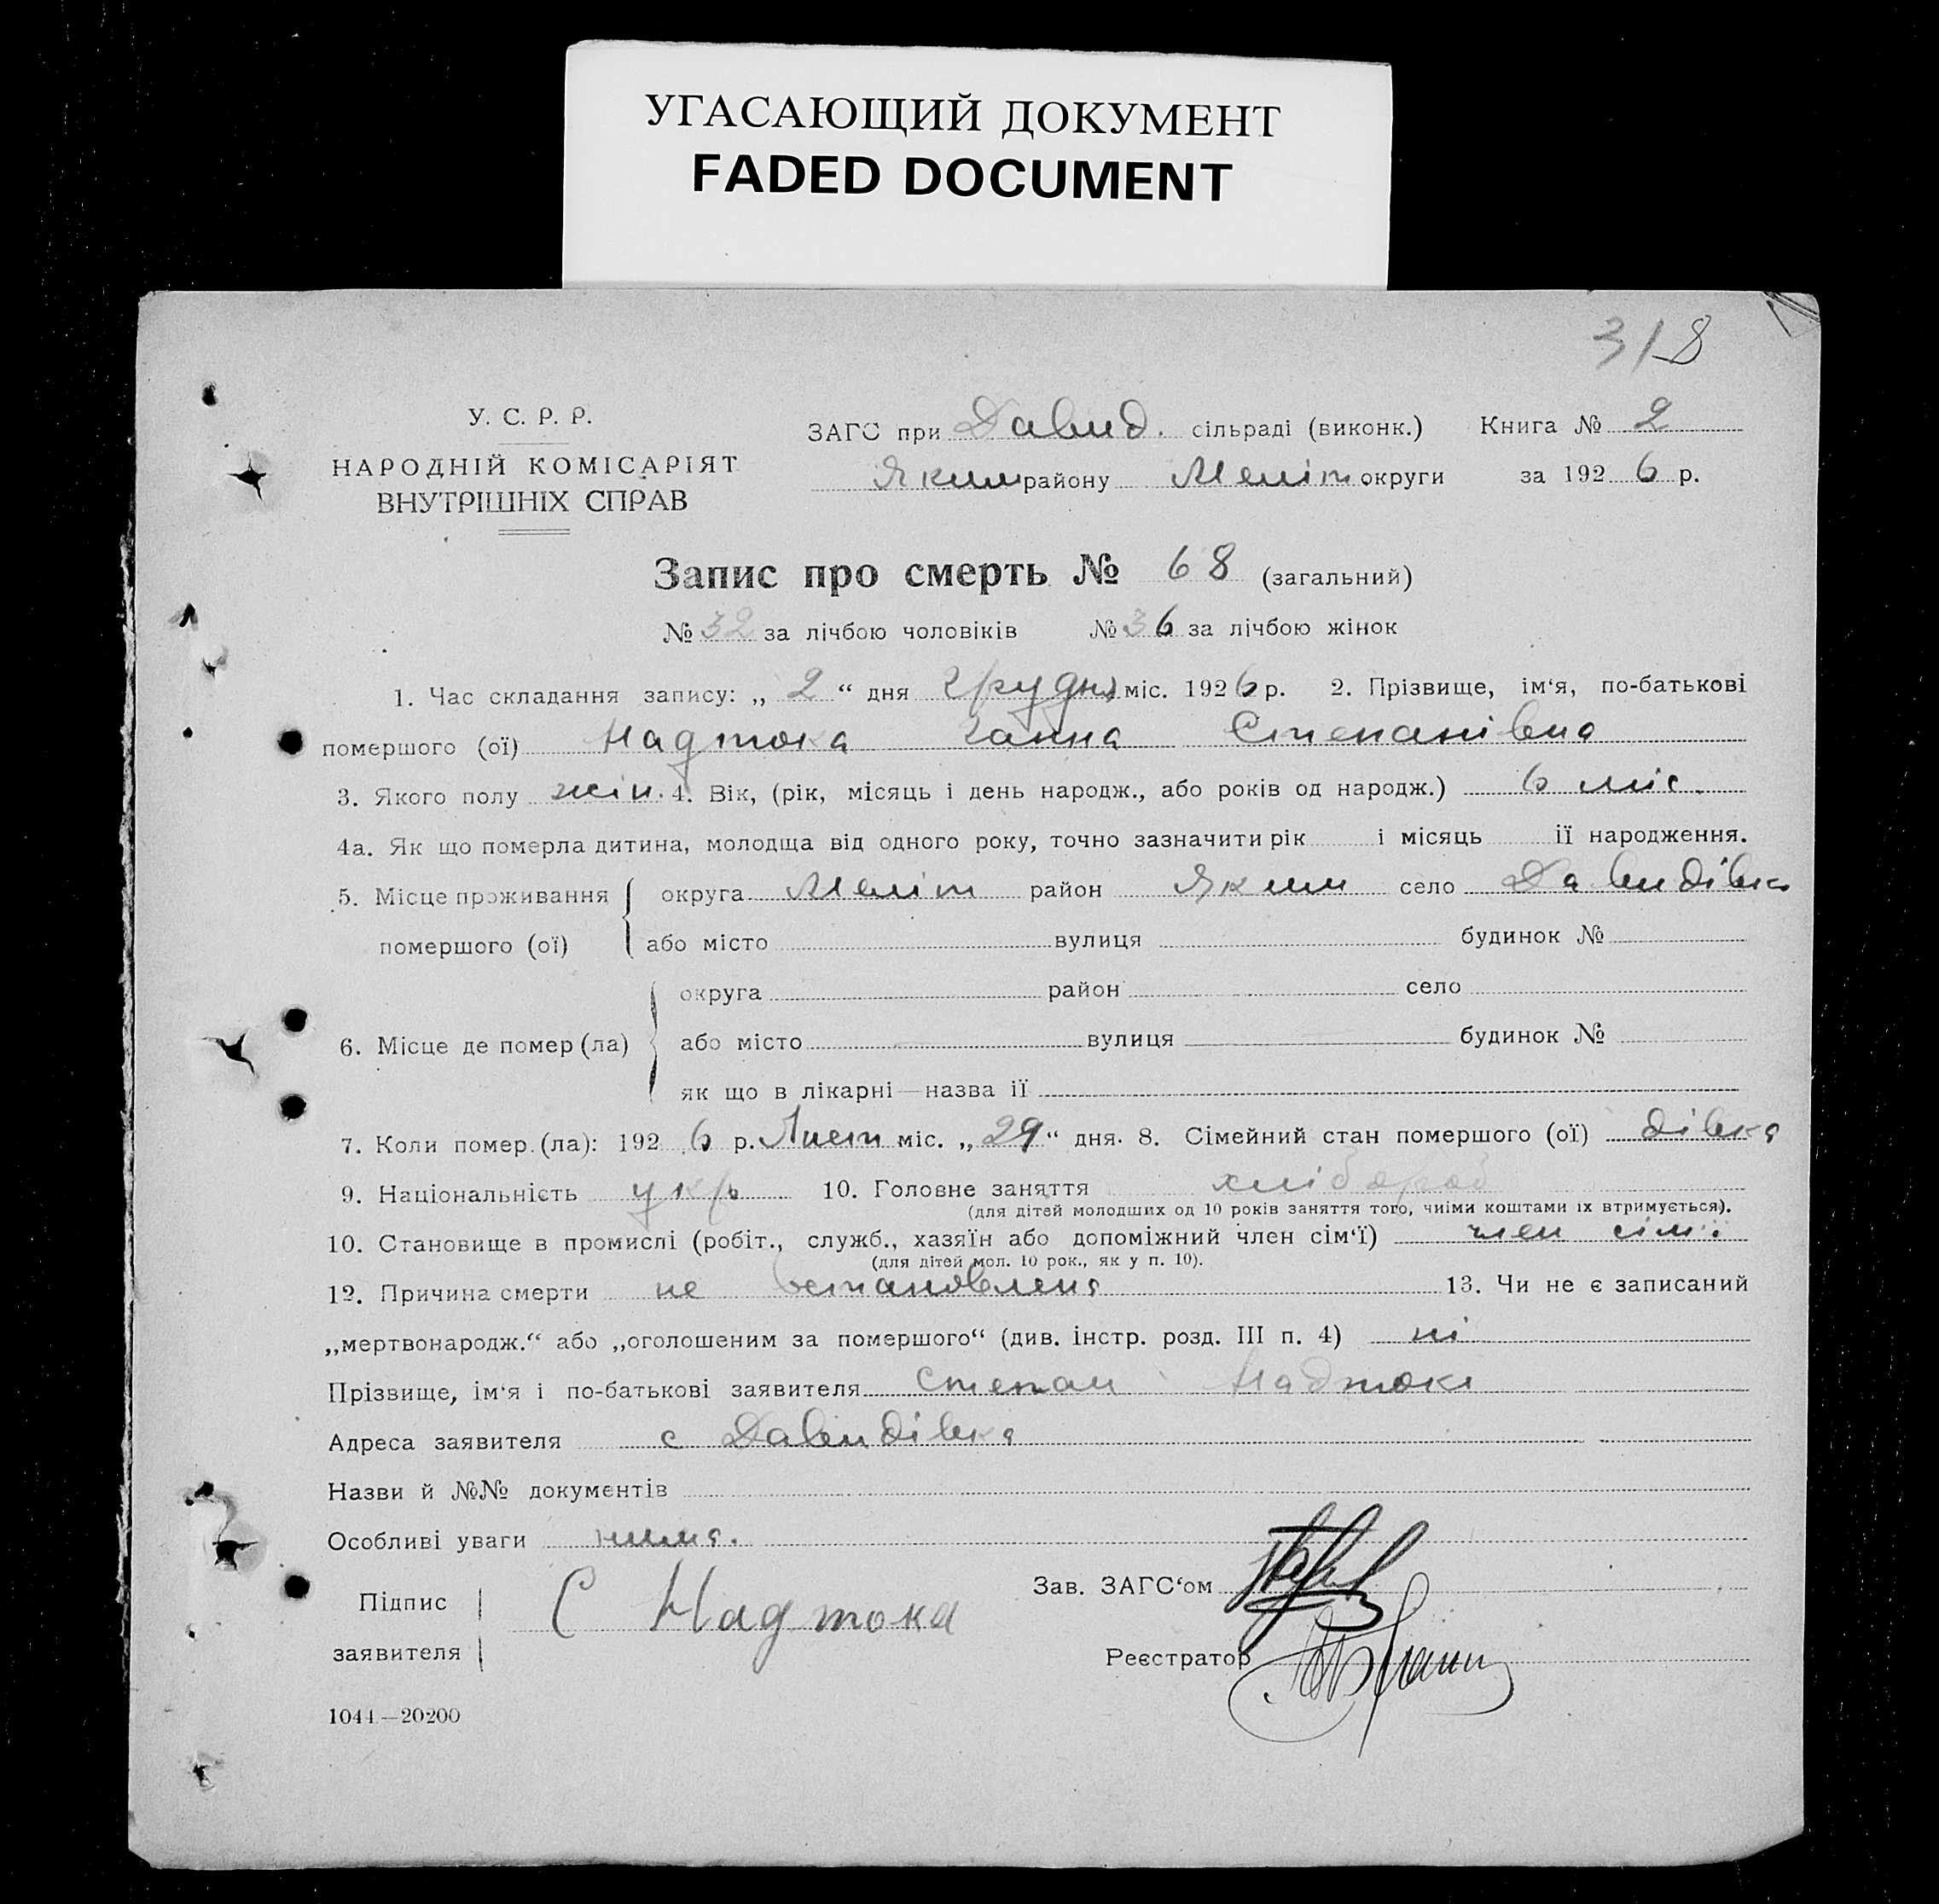 УГАСАЮЩИЙ ДОКУМЕНТ
FADED DOCUMENT
318
У. С. Р. Р.
НАРОДНІЙ КОМІСАРІЯТ
ВНУТРІШНІХ СПРАВ
ЗАГС при Давид. сільраді (виконк.) Книга № 2
Яким району Меліт округи за 1926 р.
Запис про смерть № 68 (загальний)
№ 32 за лічбою чоловіків № 36 за лічбою жінок
1. Час складання запису: „ 2 “ дня грудня міс. 1926 р. 2. Прізвище, ім‘я, по-батькові
помершого (ої) Надтока Ганна Степанівна
3. Якого полу жін. 4. Вік, (рік, місяць і день народж., або років од народж.) 6 міс.
4а. Як що померла дитина, молодща від одного року, точно зазначити рік і місяць ії народження.
5. Місце проживання округа Меліт район Яким село Давидівка
помершого (ої) або місто вулиця будинок №
округа район село
6. Місце де помер (ла) або місто вулиця будинок №
як що в лікарні—назва ії
7. Коли помер (ла): 1926 р. Лист міс. „ 29 “ дня. 8. Сімейний стан помершого (ої) дівка
9. Національність укр 10. Головне заняття хлібороб
(для дітей молодших од 10 років заняття того, чиїми коштами їх втримується).
10. Становище в промислі (робіт., служб., хазяїн або допоміжний член сім‘ї) член сім'ї
(для дітей мол. 10 рок., як у п. 10).
12. Причина смерти не встановлена 13. Чи не є записаний
„мертвонародж.“ або „оголошеним за помершого“ (див. інстр. розд. III п. 4) ні
Прізвище, ім‘я і по-батькові заявителя Степан Надтока
Адреса заявителя с Давидівка
Назви й №№ документів
Особливі уваги нима.
Підпис заявителя С Надтока
Зав. ЗАГС‘ом
Реєстратор
1044—20200